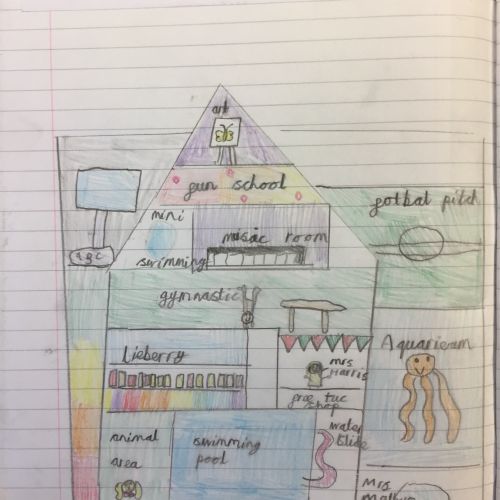 art
fun school
fotbal pitch
mini
music room
swimming
ABC
gymnastic
Lieberry
mrs
Harris
Aquarieam
free tuc
shop
animal
area
swimming
pool
water
slide
Mrs